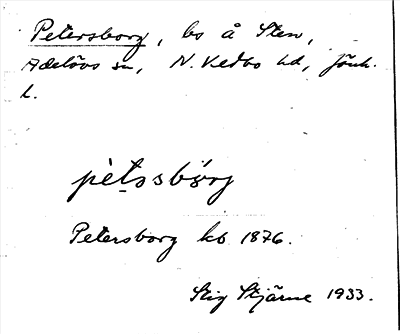 Petersborg, bs å Sten,
Adelövs sn, N. Vedbo hd, Jönk.
l.
pètsbòrg
Petersborg kb 1876.
Stig Stjärne 1933.